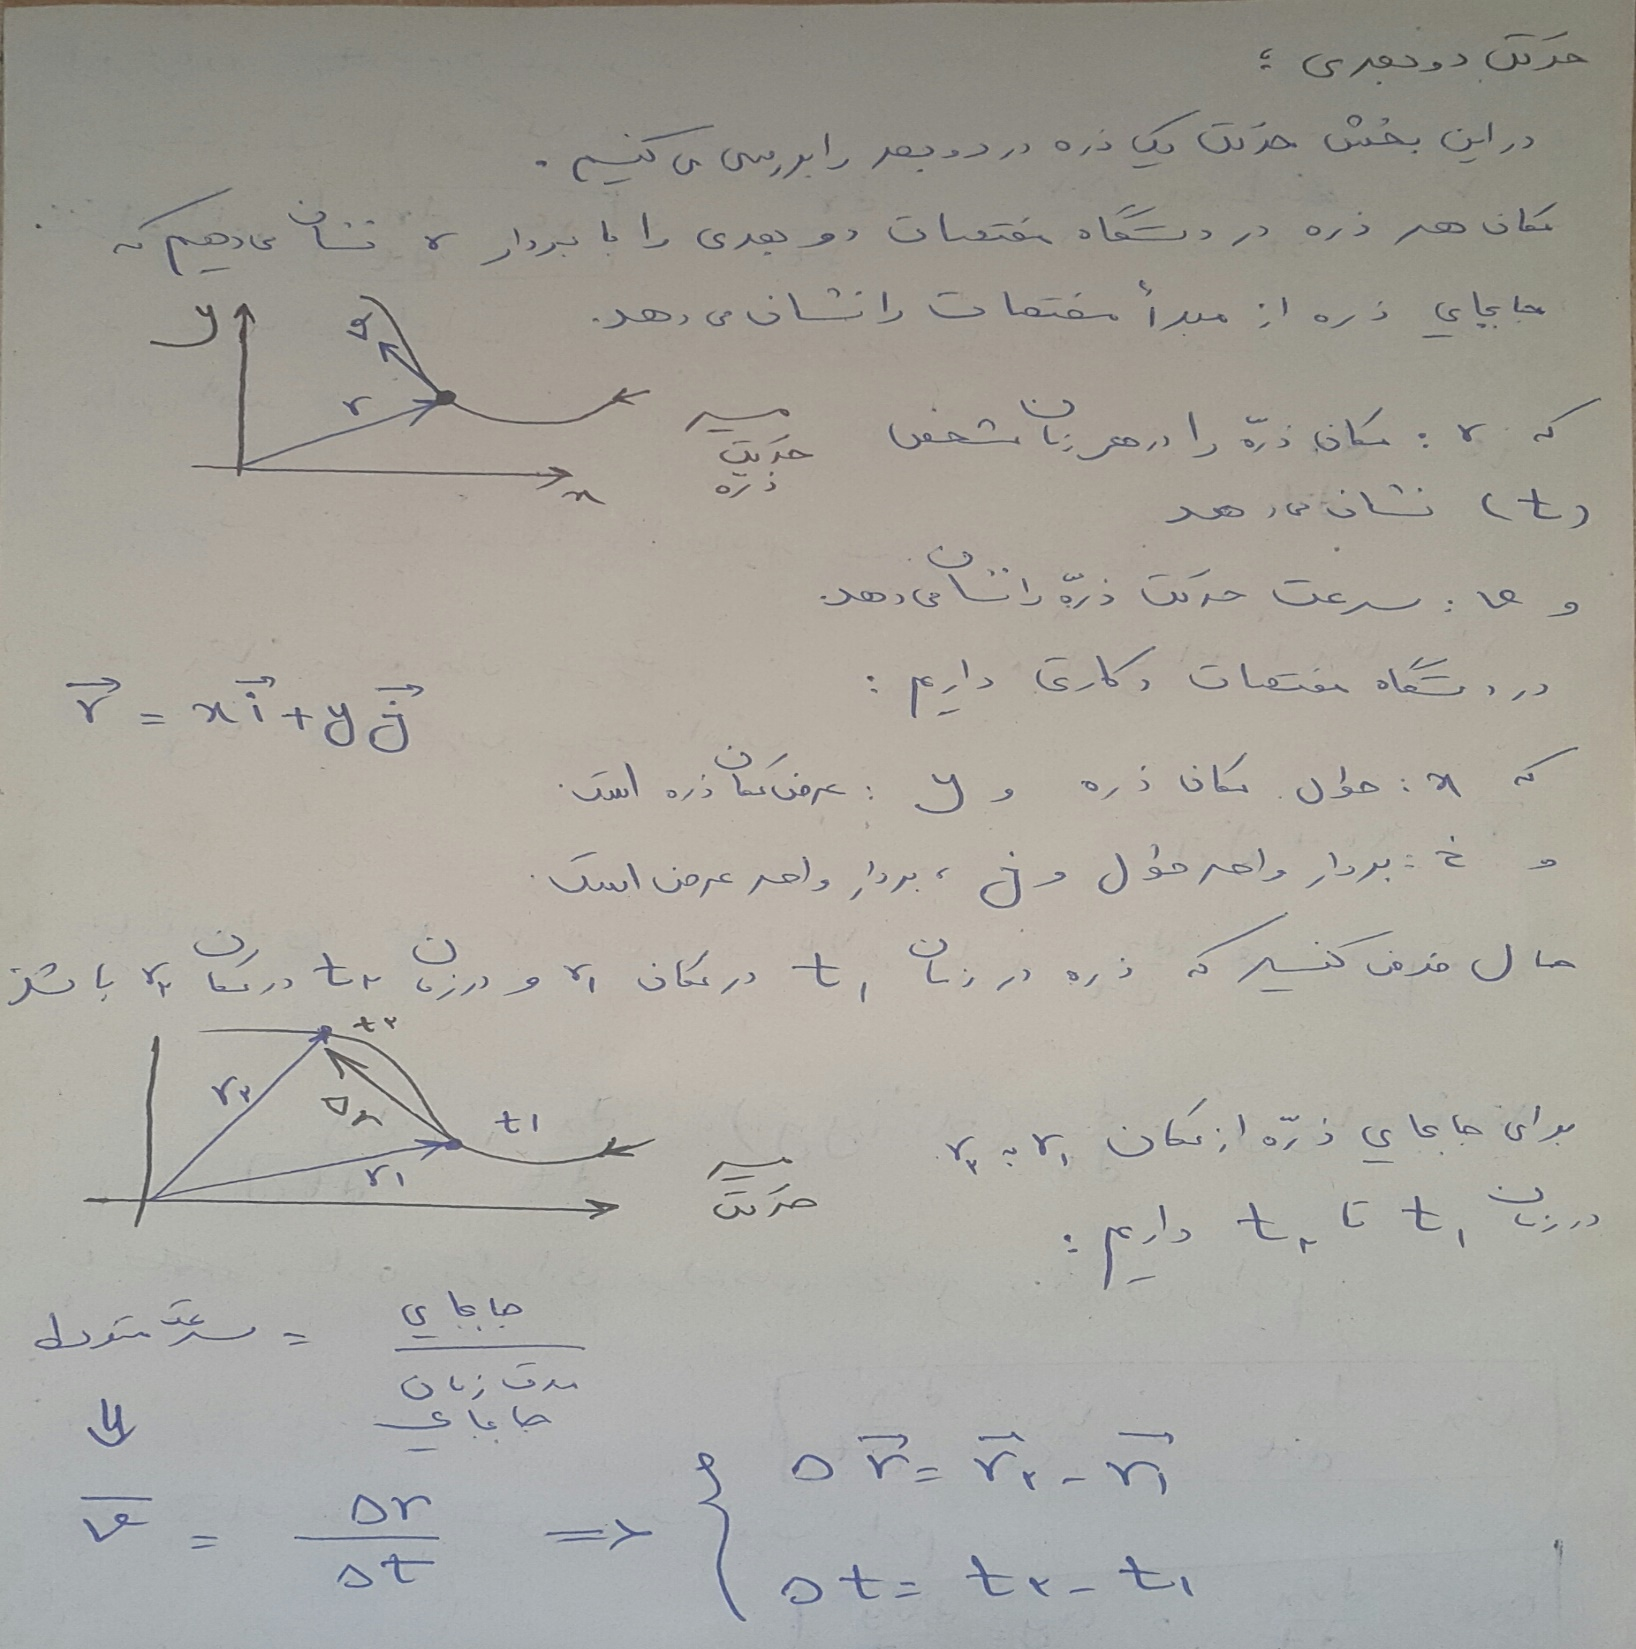 حرکت دو بعدی :
در این بخش حرکت یک ذره در دو بعد را بررسی می کنیم .
مکان هر ذره در دستگاه مختصات دو بعدی را با بردار r نشان می دهیم که
جابجایی ذره از مبدأ مختصات را نشان می دهد.
y
v
r
x
مسیر
حرکت
ذره
که r : مکان ذرّه را در هر زمان مشخص
(t) نشان می دهد
و v : سرعت حرکت ذرّه را نشان می دهد.
در دستگاه مختصات دکارتی داریم :
r⃗ = x i⃗ + y j⃗
که x : طول مکان ذره و y : عرض مکان ذره است.
و i : بردار واحد طول و j ، بردار واحد عرض است.
حال فرض کنید که ذره در زمان t۱ در مکان r۱ و در زمان t۲ در مکان r۲ باشد
t۲
r۲
Δr
t۱
r۱
مسیر
حرکت
برای جابجایی ذرّه از مکان r۱ به r۲
در زمان t۱ تا t۲ داریم :
سرعت متوسط = جابجایی / مدت زمان جابجایی
⇓
v̅ = Δr / Δt ⇒ { Δr⃗ = r⃗۲ - r⃗۱
Δt = t۲ - t۱